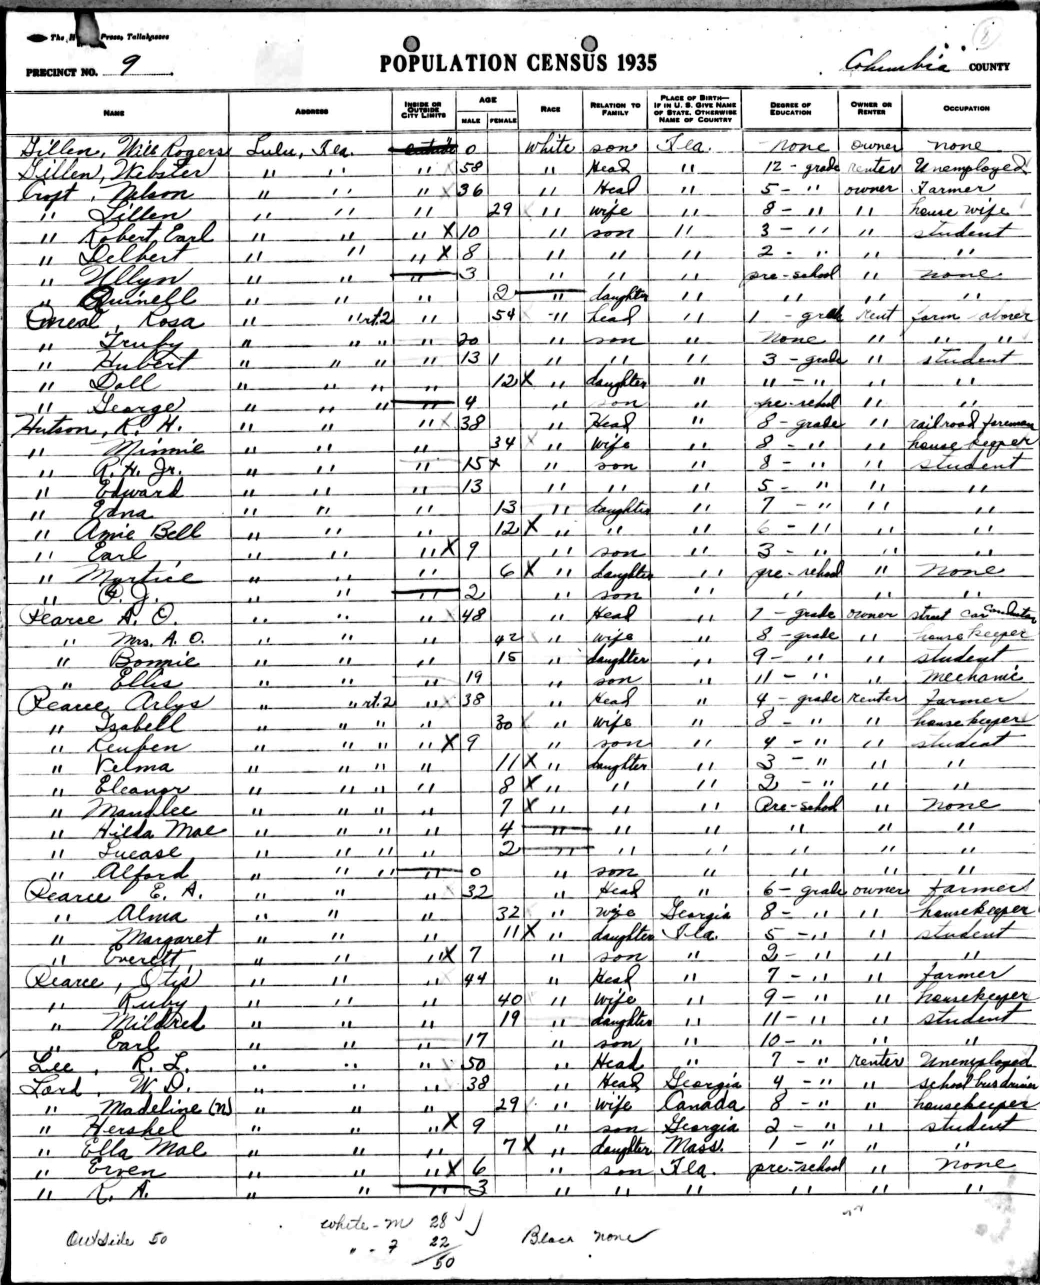 The Press, Tallahassee
PRECINCT NO. 9 POPULATION CENSUS 1935 Columbia COUNTY
NAME ADDRESS INSIDE OR OUTSIDE CITY LIMITS AGE MALE FEMALE RACE RELATION TO FAMILY PLACE OF BIRTH— IF IN U. S. GIVE NAME OF STATE, OTHERWISE NAME OF COUNTRY DEGREE OF EDUCATION OWNER OR RENTER OCCUPATION
Gillen, Will Rogers Lulu, Fla. outside 0 white son Fla. none owner none
Gillen, Webster " " " 58 " Head " 12 - grade renter Unemployed
Croft, Nelson " " " 36 " Head " 5 - " owner Farmer
" Lillen " " " 29 " wife " 8 - " " house wife
" Robert Earl " " " X 10 " son " 3 - " " student
" Delbert " " " X 8 " " " 2 - " " "
" Ullyn " " " 3 " " " pre-school " none
" Quinell " " " 2 " daughter " " " "
Oneal, Rosa " " rt.2 " 54 " head " 1 - grade rent farm laborer
" Truby " " " " 20 " son " none " " "
" Hubert " " " " 13 " " " 3 - grade " student
" Doll " " " " 12 X " daughter " " - " " "
" George " " " " 4 " son " pre-school " "
Hutson, R. H. " " " 38 " Head " 8 - grade " railroad foreman
" Minnie " " " 34 " Wife " 8 - " " house keeper
" R. H. Jr. " " " 15 X " son " 8 - " " student
" Edward " " " 13 " " " 5 - " " "
" Edna " " " 13 " daughter " 7 - " " "
" Amie Bell " " " 12 X " " " 6 - " " "
" Earl " " " X 9 " son " 3 - " " "
" Myrtice " " " 6 X " daughter " pre-school " None
" " " " 2 " son " " " "
Pearce A. O. " " " 48 " Head " 7 - grade owner street car conductor
" Mrs. A. O. " " " 42 " wife " 8 - grade " housekeeper
" Bonnie " " " 15 " daughter " 9 - " " student
" Ellis " " " 19 " son " 11 - " " mechanic
Pearce, Arlys " " rt.2 " 38 " Head " 4 - grade renter Farmer
" Isabell " " " " 30 " wife " 8 - " " housekeeper
" Reuben " " " " X 9 " son " 4 - " " student
" Velma " " " " 11 X " daughter " 3 - " " "
" Eleanor " " " " 8 X " " " 2 - " " "
" Maudlee " " " " 7 X " " " Pre-school " none
" Hilda Mae " " " " 4 " " " " " "
" Lucase " " " " 2 " " " " " "
" Alford " " " " 0 " son " " " "
Pearce E. A. " " " 32 " Head " 6 - grade owner farmer
" Alma " " " 32 " wife Georgia 8 - " " housekeeper
" Margaret " " " 11 X " daughter Fla. 5 - " " student
" Everett " " " X 7 " son " 2 - " " "
Pearce, Otis " " " 44 " Head " 7 - " " farmer
" Ruby " " " 40 " wife " 9 - " " housekeeper
" Mildred " " " 19 " daughter " 11 - " " student
" Earl " " " 17 " son " 10 - " " "
Lee, R. L. " " " 50 " Head " 7 - " renter Unemployed
Lord, W. D. " " " 38 " Head Georgia 4 - " " school bus driver
" Madeline (N) " " " 29 " wife Canada 8 - " " housekeeper
" Hershel " " " X 9 " son Georgia 2 - " " student
" Ella Mae " " " 7 X " daughter Mass. 1 - " " "
" Erven " " " X 6 " son Fla. pre-school " none
" R. A. " " " 3 " " " " " "
Outside 50 white - M 28 Black none
" - F 22
50